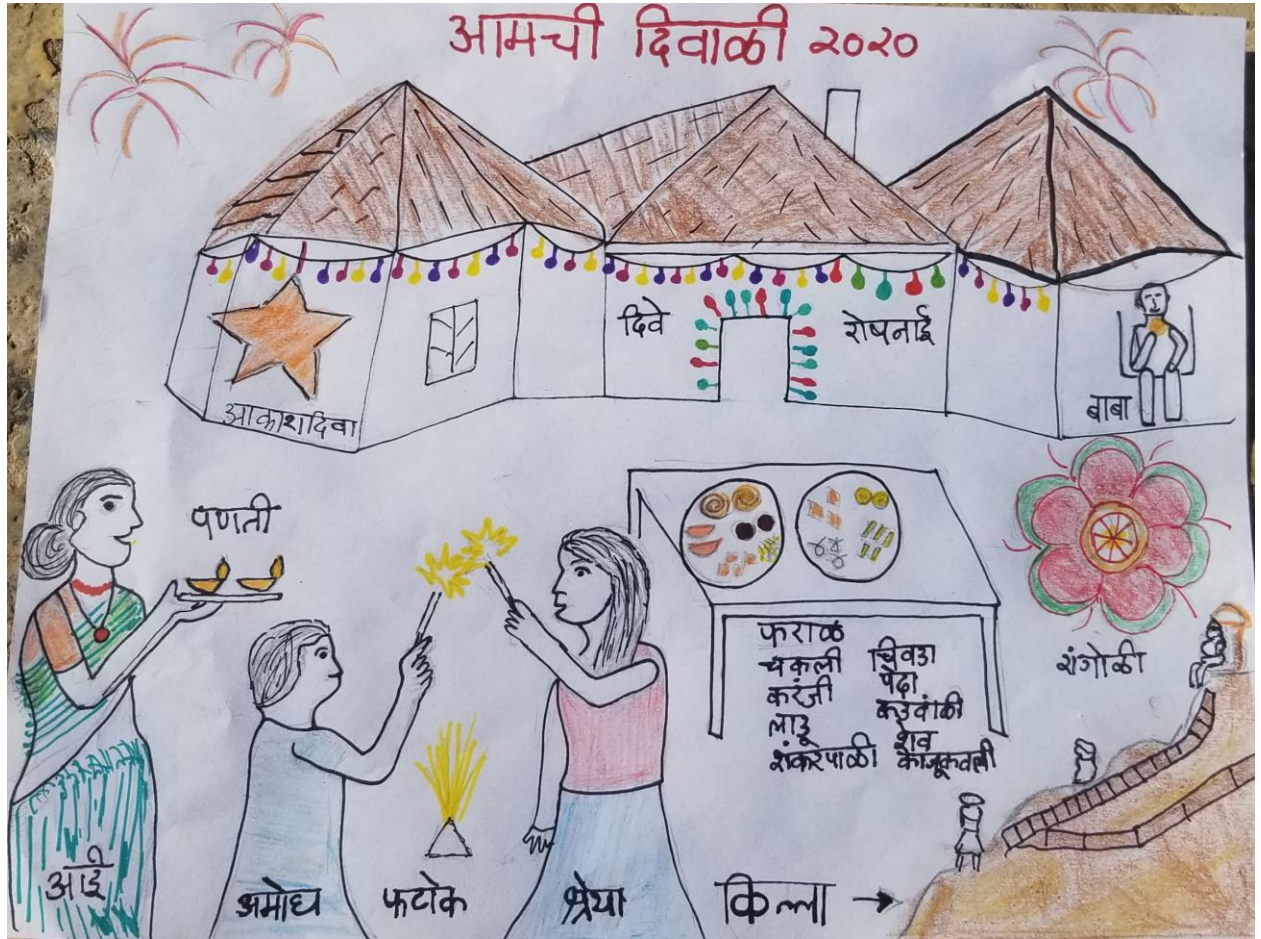 आमची दिवाळी २०२०
दिवे
रोषनाई
आकाशदिवा
बाबा
पणती
फराळ
चकली
करंजी
लाडू
शंकरपाळी
चिवडा
पेढा
कडबोळी
शेव
काजूकतली
रांगोळी
आई
अमोघ
फटाके
श्रेया
किल्ला →